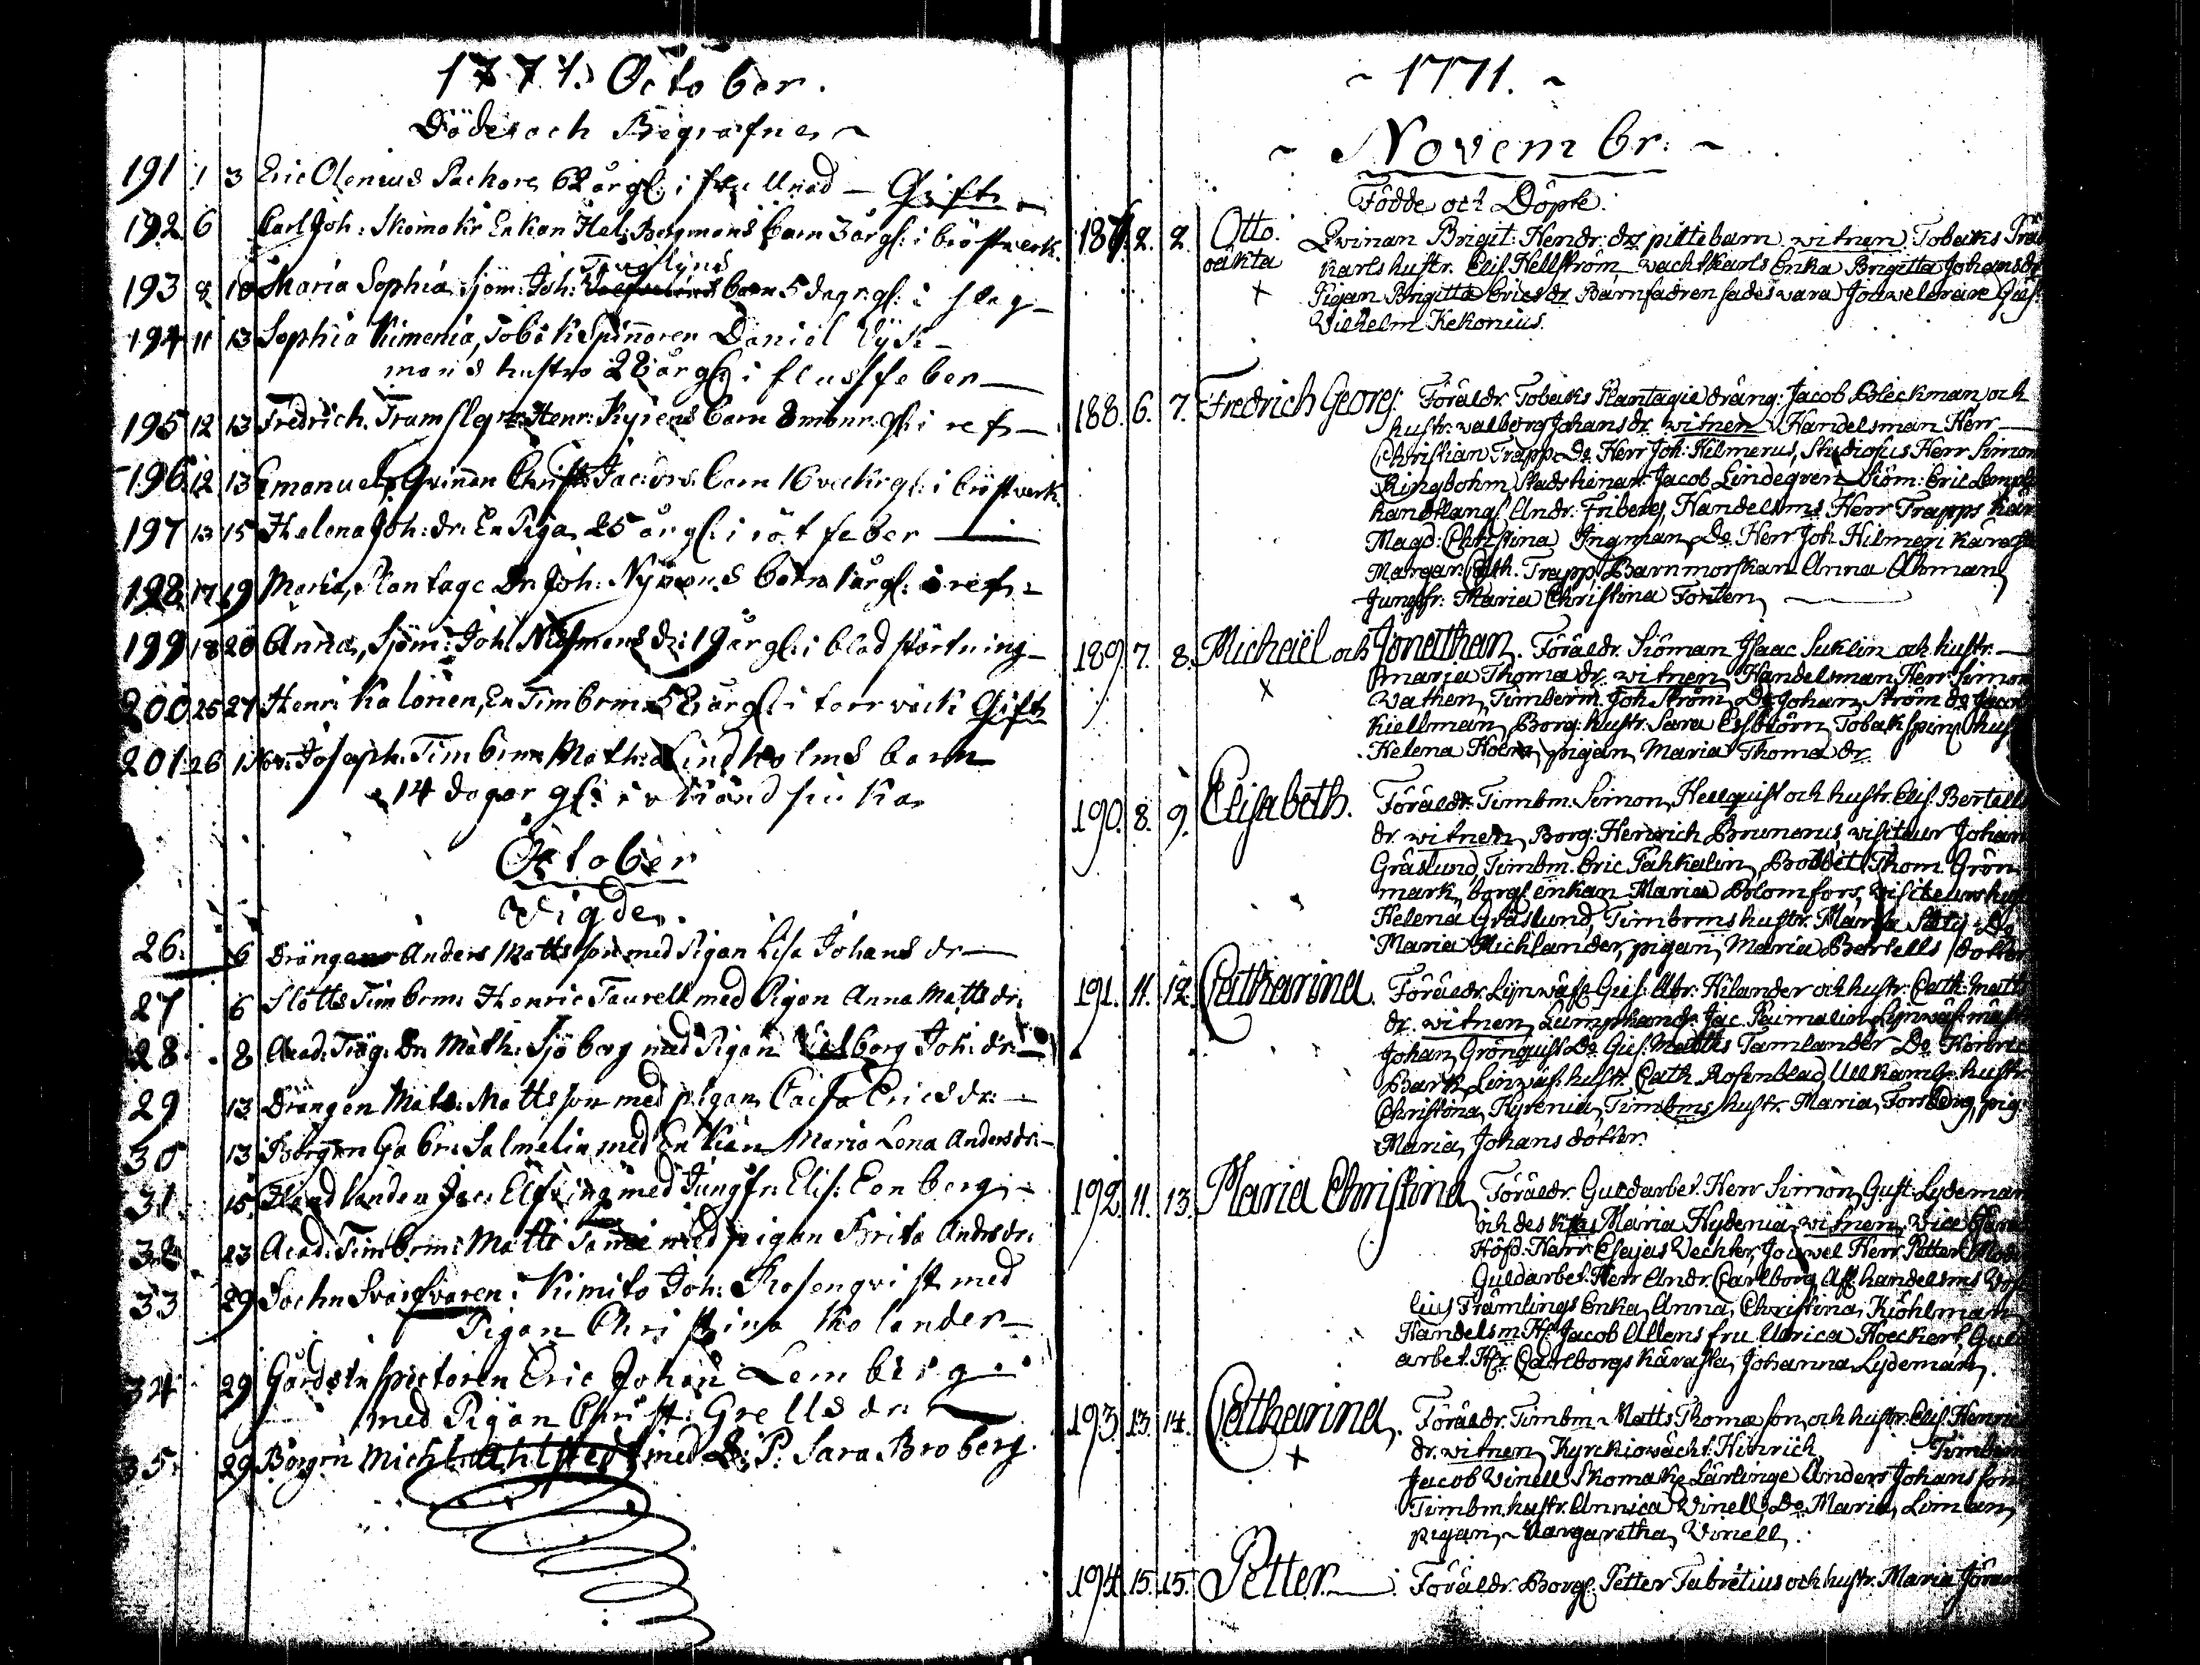 1771. October.
Döde och Begrafne
191 1 3 Eric Olenius Packare 62 år gl: i frullnad — Gift
192 6 Carl Joh: Skomakr Enkan Hel: Bergmans barn 3 år gl: i bröstwerk.
Tuglijns
193 8 10 Maria Sophia Sjöm: Joh: barn 5 dagr gl: i slag
194 11 13 Sophia Kimenia, Tobak Spinnaren Daniel Lijk-
mans hustro 28 år gl: i flussfeber
195 12 13 Fredrich. Trumslgr: Henr: Kyrens barn 8 månr. gl: i ref
196 12 13 Emanuel, Qvinnan Christ: Jac: drs barn 16 veckr gl: i bröstverk
197 13 15 Helena Joh: dr: En Piga 25 år gl: i rötfeber
198 17 19 Maria, Plantage Dr: Joh: Nymans barn 1 år gl: i ref
199 18 20 Anna, Sjöm: Joh: dr: 19 år gl: i blodstörtning
200 25 27 Henri Kalonen, En Timberm: 52 år gl: i torrvärk Gift
201 26 1 Nov: Joseph. Timberm Math: Lindholms barn
14 dagar gl: i okiänd siuka
October
Vigde.
26. 6 Drängen Anders Mattsson med Pigan Lisa Johans dr
27 6 Slotts Timberm: Henric Taurell med Pigan Anna Matts dr:
28. 8 Acad: Träg: Dr: Math: Sjöberg med Pigan Valborg Joh: dr:
29 13 Drängen Mats Mattsson med pigan Caisa Erics dr:
30 13 Borgren Gabr: Salmelin med Enkian Maria Lena Anders dr:
31. 15 Handlanden Jac: Elfving med Jungfr: Elis: Eenberg
32 23 Acad: Timberm: Matts med pigan Brita Anders dr:
33 29 Sochn Svarfvaren i Kimito Joh: Rosenqvist med
Pigan Christina Kolander
34 29 Gårds Inspectoren Eric Johan Lemberg
med Pigan Christ: Grells dr:
35. 29 Borgrn Mich: Ahlstedt med D: P: Sara Broberg.
~ 1771. ~
~ Novembr: ~
Födde och Döpte.
187. 2. 2. Otto. Qvinan Brigit: Hendr: drs pilttebarn witnen Tobaks
oäkta karls hustr. Elis. Hellström wachtkarls Enka Brigitta Johansdr
+ Pigan Brigitta Ericsdr Barnfadren sades wara Jouvelerare Gäs:
Wilhelm Kekonius.
188. 6. 7. Fredrich Georg. Föräldr. Tobaks Plantagie dräng: Jacob Bleckman och
hustr: walborg Johansdr. witnen Handelsman Herr
Christian Trapp Do. Herr Joh: Hilmerus, Studiosus Herr Simon
Ringbohm Stadsthenar: Jacob Lindeqren Siöm: Eric
handtlang: Andr: Friberg, Handelsms. Herr Trapps
Magd: Christina Ingman, Do Herr Joh Hilmeri käresta
Margar: Cath. Trapp Barnmorskan Anna Åhman
Jungfr: Maria Christina Tonten
189. 7. 8. Michaël och Jonathan. Föräldr. Siöman Isaac Suklin och hustr.
+ Maria Thoma dr. witnen Handelsman Herr Simon
Wathen Timberm. Joh Ström, Do Johan Ström do
Kiellsman, Borg: hustr. Sara Essbiörn, Tobakspinn hust
Helena pigan, Maria Thoma dr.
190. 8. 9. Elisabeth. Föräldr. Timbm. Simon Hellquist och hustr. Elis. Bertells
dr. witnen Borg: Henrich Brunerus, visiteur Johan
Gräslund, Timbm. Eric Pahkalin, Thom. Grön
mark, borgs enkan Maria Blomfors, Visiteurs
Helena Gräslund, Timberms hustr. Maria
Maria Michlander, pigan, Maria Bertells dotter
191. 11. 12. Catharina. Föräldr. Lijnwäf: Gies: Abr: Hilander och hustr: Cath: Matts
dr. witnen Lumphandr Jac. Lijnwäf.
Johan Grönquist Do. Gies: Matths Tamlander Do
Bark, Linwäf: hustr. Cath. Rosenblad, Ullkamr. hustr.
Christina, Hyrenia, Timbms hustr. Maria, Forsberg, pig:
Maria, Johans dotter.
192. 11. 13. Maria Christina. Föräldr. Guldarbet. Herr Simon Gust: Lydeman
och des k: fru Maria Hydenia, witnen, Vice
Höfd. Herr Esajas Wechter, Jouwel Herr. Petter
Guldarbet. Herr Andr. Carlborg Aff. handelsms
Främlings Enka, Anna, Christina, Kiöhlman
Handelsm. Hr. Jacob Allens fru Ulrica Hoeckert Guld
arbet. Hr. Carlborgs Kärasta, Johanna Lydeman.
193. 13. 14. Catharina. Föräldr. Timbm. Matts Thomæ son, och hustr. Elis. Henrics
+ dr. witnen Kyrckiowächt: Hinrich Timberm
Jacob Winell Skomak. Lärlinge Anders Johans son
Timbm. hustr. Annica Winell, Do Maria, Liman
pigan, Margaretha, Winell.
194. 15. 15. Petter. Föräldr. Borgl. Petter Fabritius och hustr. Maria